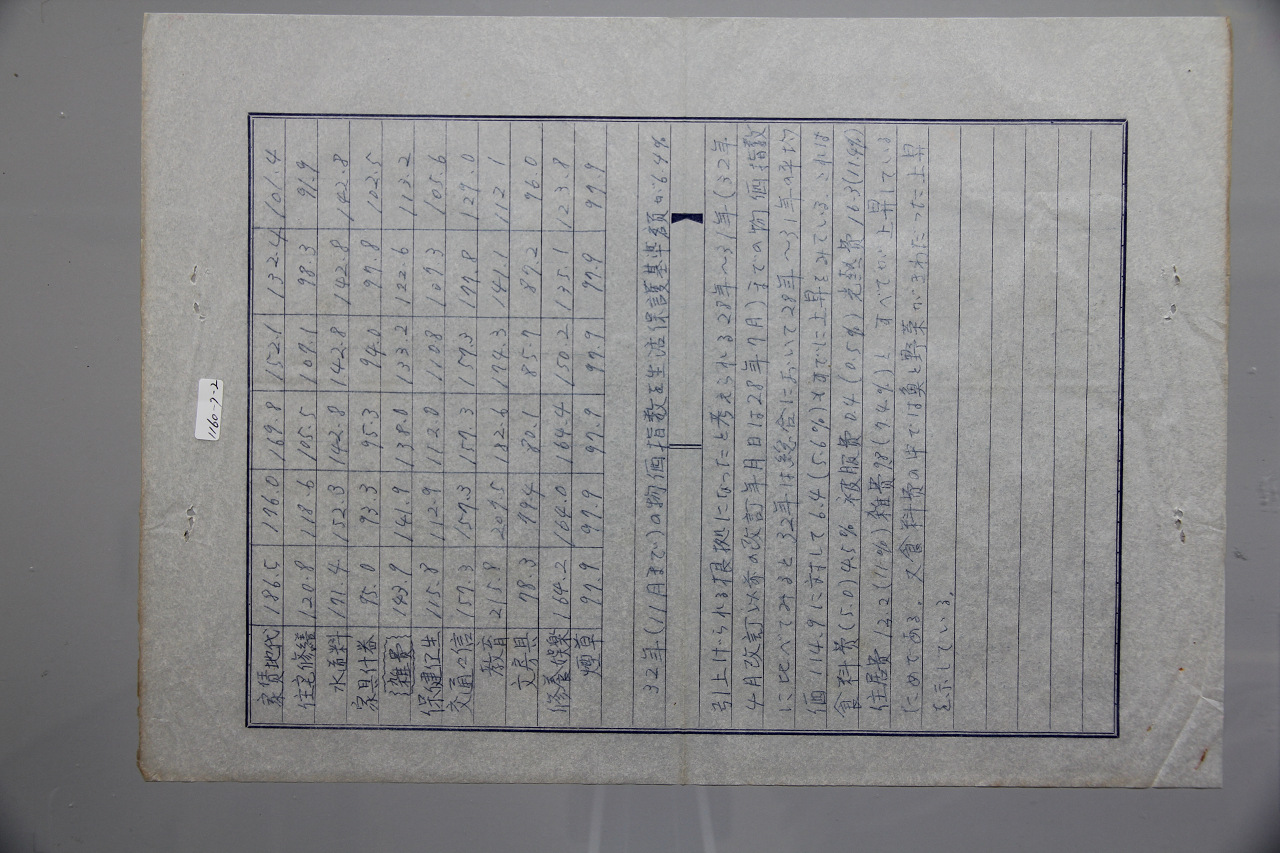 家賃地代 186.5 176.0 169.8 152.1 132.4 101.4
住宅修繕 120.8 118.6 105.5 107.1 98.3 97.9
水道料 171.4 152.3 142.8 142.8 142.8 142.8
家具什器 95.0 93.3 95.3 94.0 97.8 102.5
雑費 143.9 141.9 138.0 133.2 122.6 113.2
保健衛生 115.8 112.9 112.0 110.8 107.3 105.6
交通通信 157.3 157.3 157.3 157.3 127.0
教育 215.8 207.5 182.6 174.3 141.1 112.1
文房具 78.3 79.4 80.1 85.7 87.2 96.0
修養娯楽 164.2 164.0 164.4 150.2 135.1 123.8
煙草 97.9 97.9 97.9 97.9 97.9 97.9
32年(11月まで)の物価指数を生活保護基準額が6.4%
引上げられる根拠になったと考えられる28年〜31年(32年
4月改訂以前の改訂年月日は28年7月)までの物価指数
に比べてみると32年は総合において28年〜31年の平均
価114.9に対して6.4(5.6%)すでに上昇をみている。これは
食料費(5.0)4.5% 被服費0.4(0.5%)光熱費16.3(14%)
住居費13.2(11%)雑費9.8(7.4%)と すべてが上昇している
ためである。又食料費の中では魚と野菜がきわだった上昇
を示している。
1160-7-2